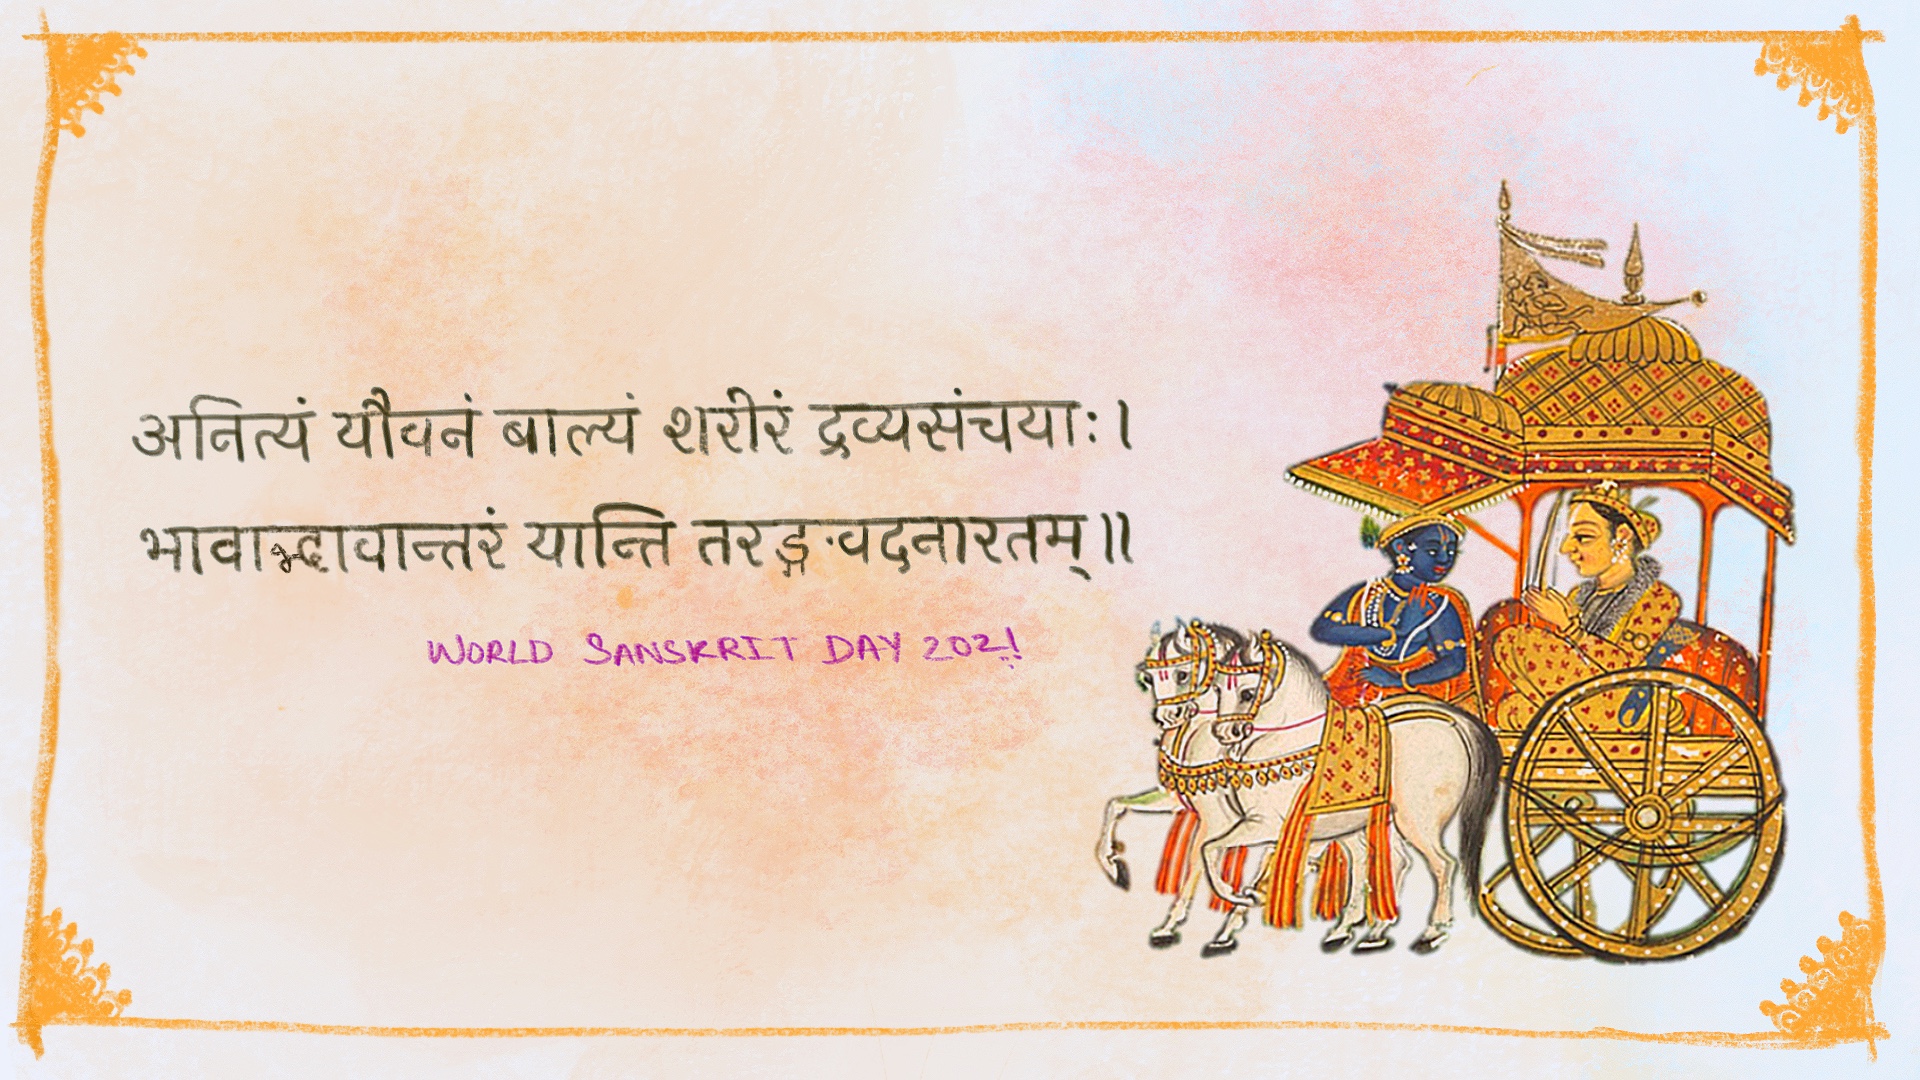 अनित्यं यौवनं बाल्यं शरीरं द्रव्यसंचयाः।
भावाद्भावान्तरं यान्ति तरङ्गवदनारतम्॥
WORLD SANSKRIT DAY 202!